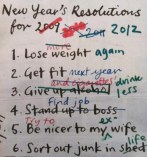 New Year's Resolutions
for 2009 2010 2011 2012
more
1. Lose weight again
2. Get fit next year
and cigarettes drink
3. Give up alcohol less
Find job
4. Stand up to boss
Try to ex-
5. Be nicer to my wife
life
6. Sort out junk in shed